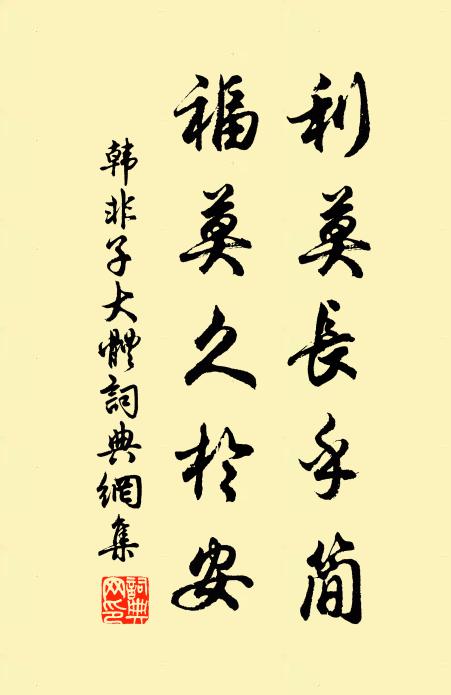 利莫長乎简
福莫久於安
韩非子大體詞典網集
詞典网印